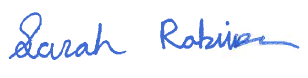 Sarah Robinson